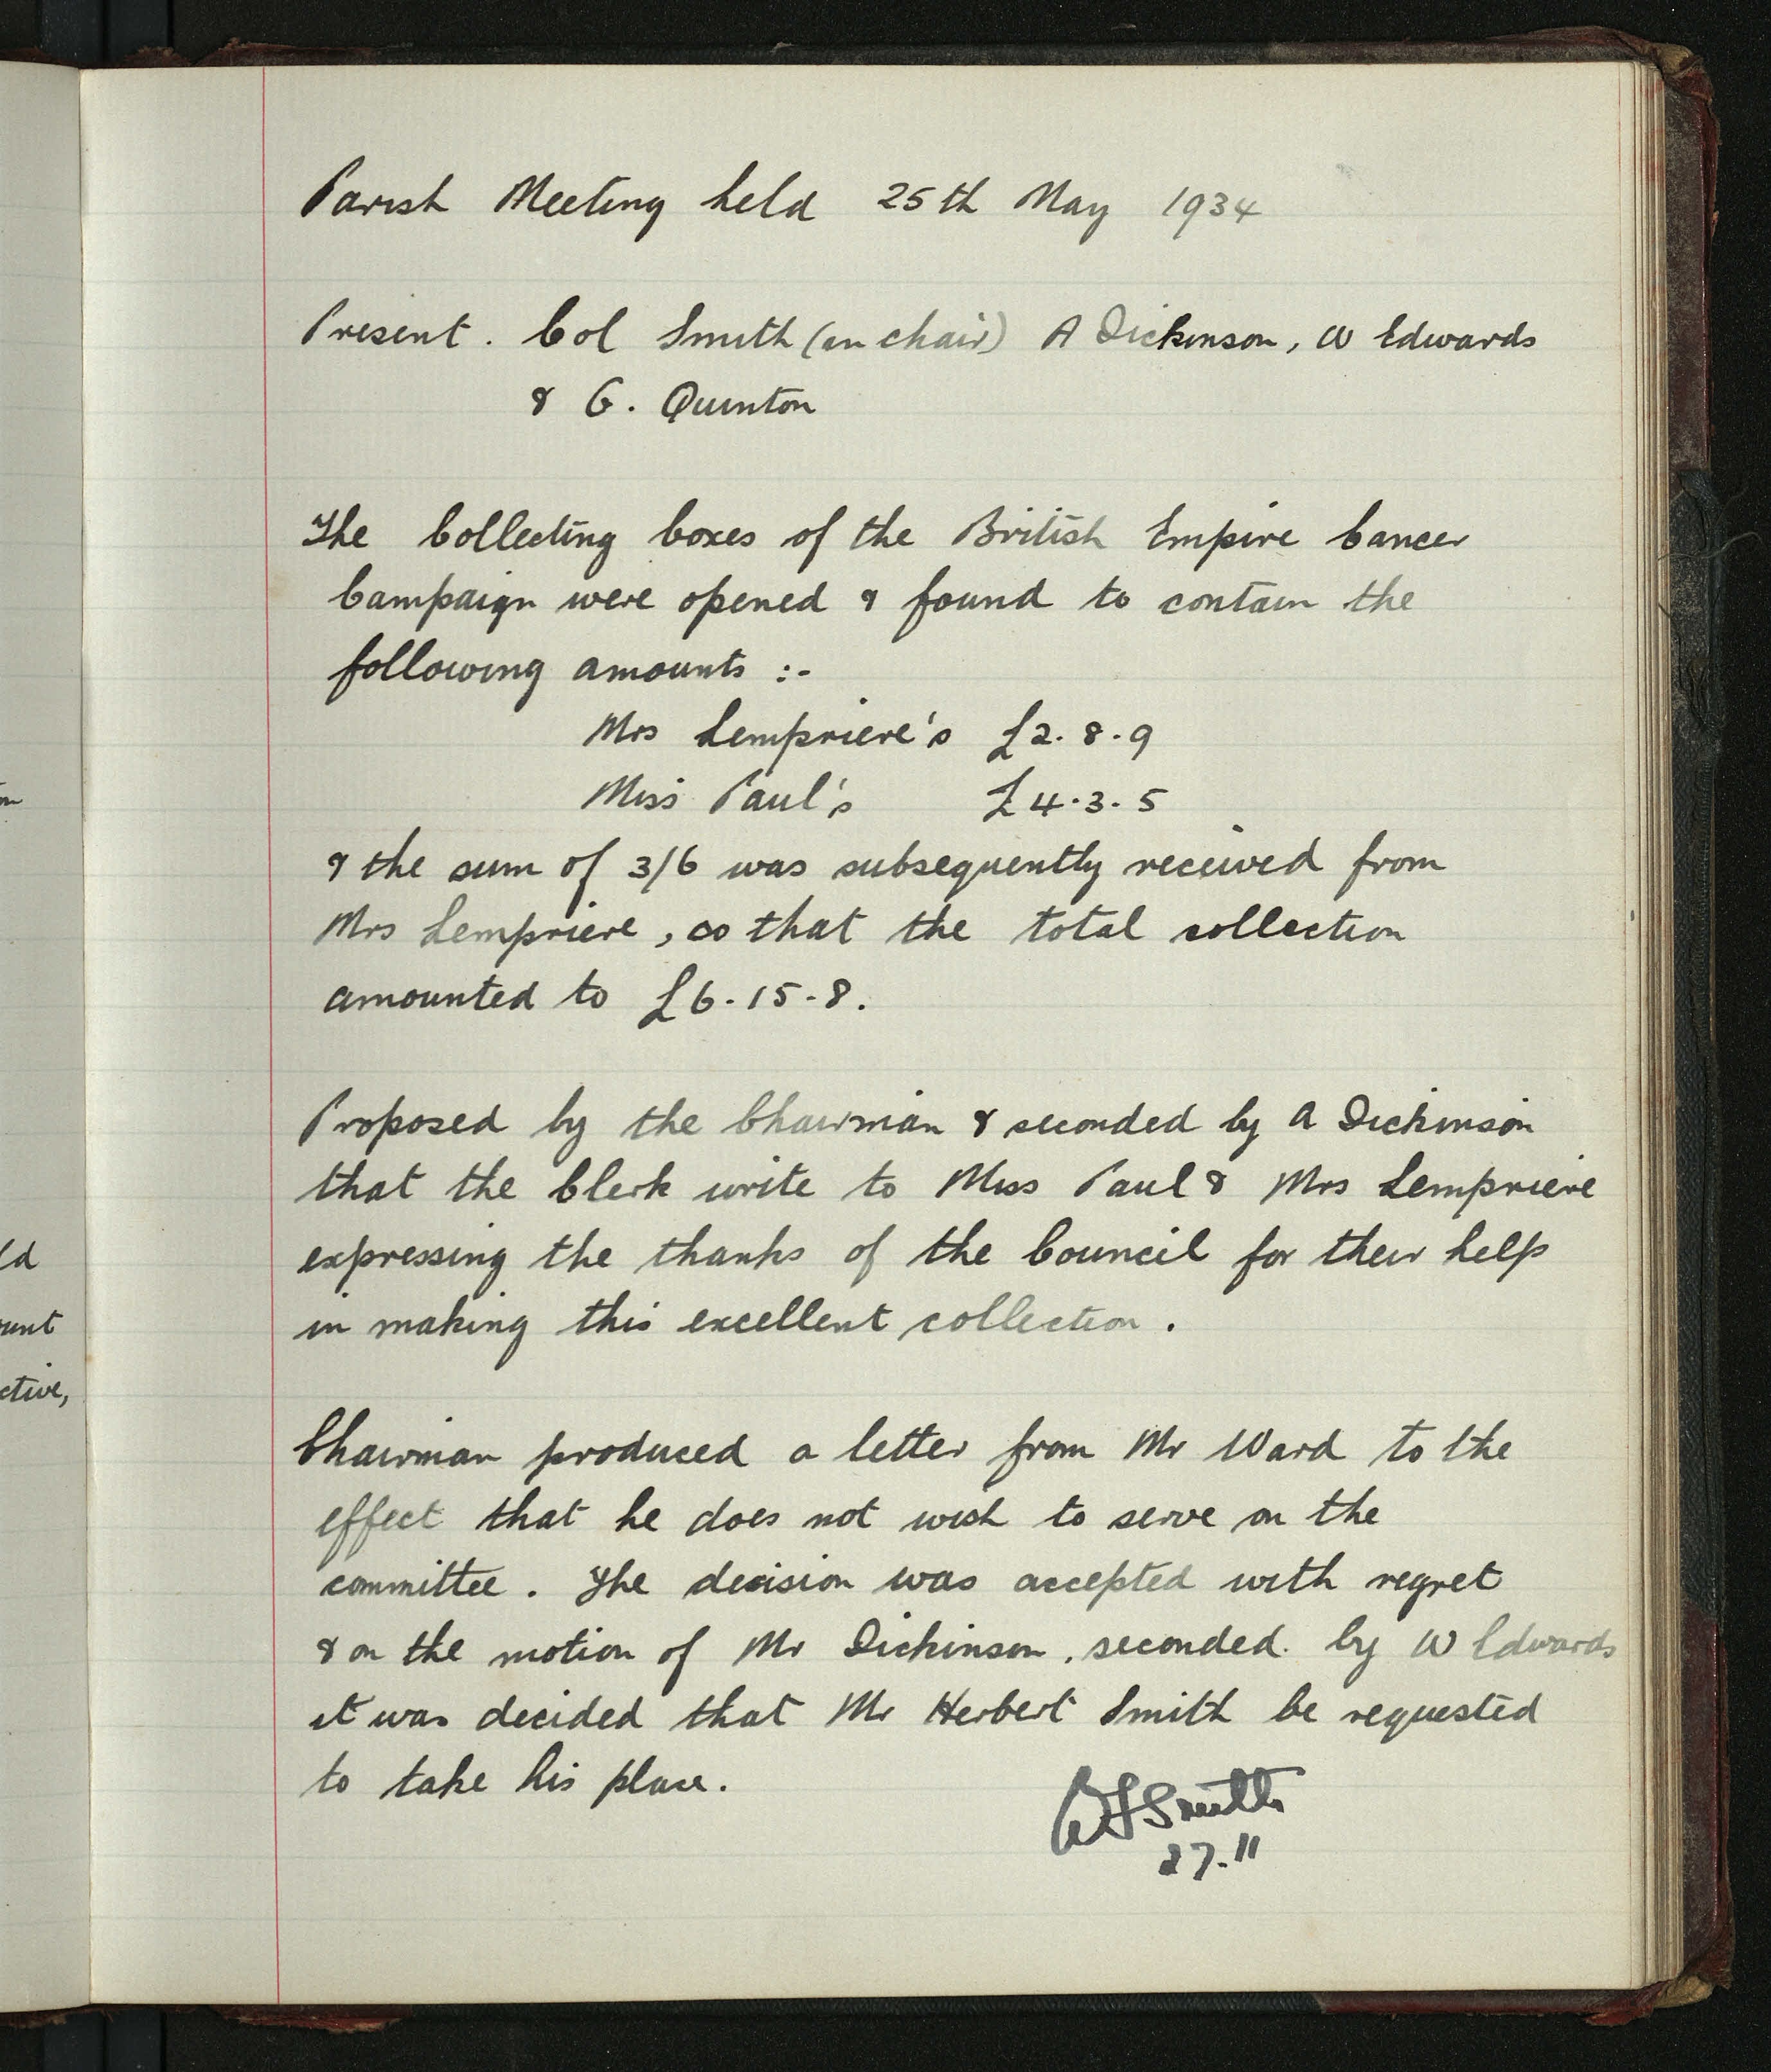 Parish Meeting held 25th May 1934
Present. Col Smith (in chair) A Dickinson, W Edwards
& G. Quinton
The Collecting boxes of the British Empire Cancer
Campaign were opened & found to contain the
following amounts :-
Mrs Lempriere's £2.8.9
Miss Paul's £4.3.5
& the sum of 3/6 was subsequently received from
Mrs Lempriere, so that the total collection
amounted to £6-15-8.
Proposed by the Chairman & seconded by A Dickinson
that the Clerk write to Miss Paul & Mrs Lempriere
expressing the thanks of the Council for their help
in making this excellent collection.
Chairman produced a letter from Mr Ward to the
effect that he does not wish to serve on the
committee. The decision was accepted with regret
& on the motion of Mr Dickinson, seconded. by W Edwards
it was decided that Mr Herbert Smith be requested
to take his place.
Smith
27.11